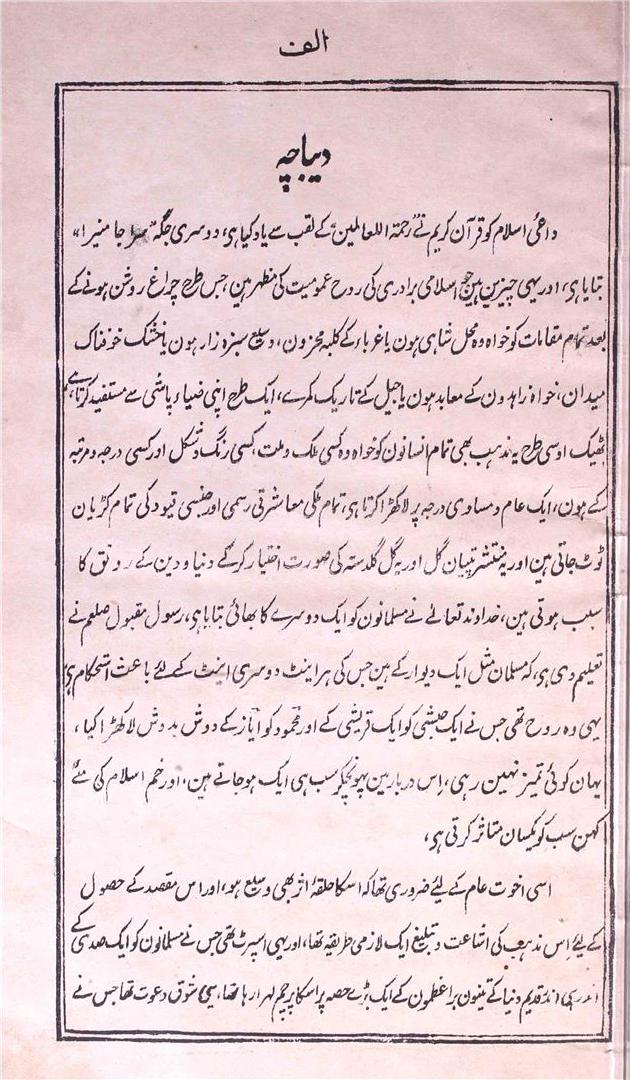 الف
دیباچہ
داعیٔ اسلام کو قرآن کریم نے ”رحمۃ اللعالمین“ کے لقب سے یاد کیا ہی، دوسری جگہ ”سراجا منیرا“
بتایا ہی، اور یہی چیزین ہین جو اسلامی برادری کی روح عمومیت کی مظہر ہین، جس طرح چراغ روشن ہونے کے
بعد تمام مقامات کو خواہ وہ محل شاہی ہون یا غرباء کے کلبۂ محزون، وسیع سبزہ زار ہون یا خشک خوفناک
میدان، خواہ زاہدون کے معابد ہون یا جیل کے تاریک کمرے، ایک طرح اپنی ضیاء پاشی سے مستفید کرتا ہے،
ٹھیک اوسی طرح یہ مذہب بھی تمام انسانون کو خواہ وہ کسی ملک و ملت، کسی رنگ و شکل اور کسی درجہ و مرتبہ
کے ہون، ایک عام و مساوی درجہ پر لا کھڑا کرتا ہی، تمام ملکی معاشرتی رسمی اور جنسی قیود کی تمام کڑیان
ٹوٹ جاتی ہین اور یہ منتشر پتیان گل اور یہ گل گلدستہ کی صورت اختیار کر کے دنیا و دین کے رونق کا
سبب ہوتی ہین، خداوند تعالےٰ نے مسلمانون کو ایک دوسرے کا بھائی بتایا ہی، رسول مقبول صلعم نے
تعلیم دی ہی، کہ مسلمان مثل ایک دیوار کے ہین جس کی ہر اینٹ دوسری اینٹ کے لئے باعث استحکام ہی
یہی وہ روح تھی جس نے ایک حبشی کو ایک قریشی کے اور محمود کو ایاز کے دوش بدوش لا کھڑا کیا،
یہان کوئی تمیز نہین رہی، اس دربار مین پہونچکر سب ہی ایک ہو جاتے ہین، اور خم اسلام کی مئے
کہن سب کو یکسان متاثر کرتی ہی،
اسی اخوت عام کے لئے ضروری تھا کہ اسکا حلقۂ اثر بھی وسیع ہو، اور اس مقصد کے حصول
کے لئے اس مذہب کی اشاعت و تبلیغ ایک لازمی طریقہ تھا، اور یہی اسپرٹ تھی جس نے مسلمانون کو ایک صدی کے
اندر ہی اندر قدیم دنیا کے تینون براعظمون کے ایک بڑے حصہ پر اسکا پرچم لہرا رہا تھا، یہی شوق دعوت تھا جس نے